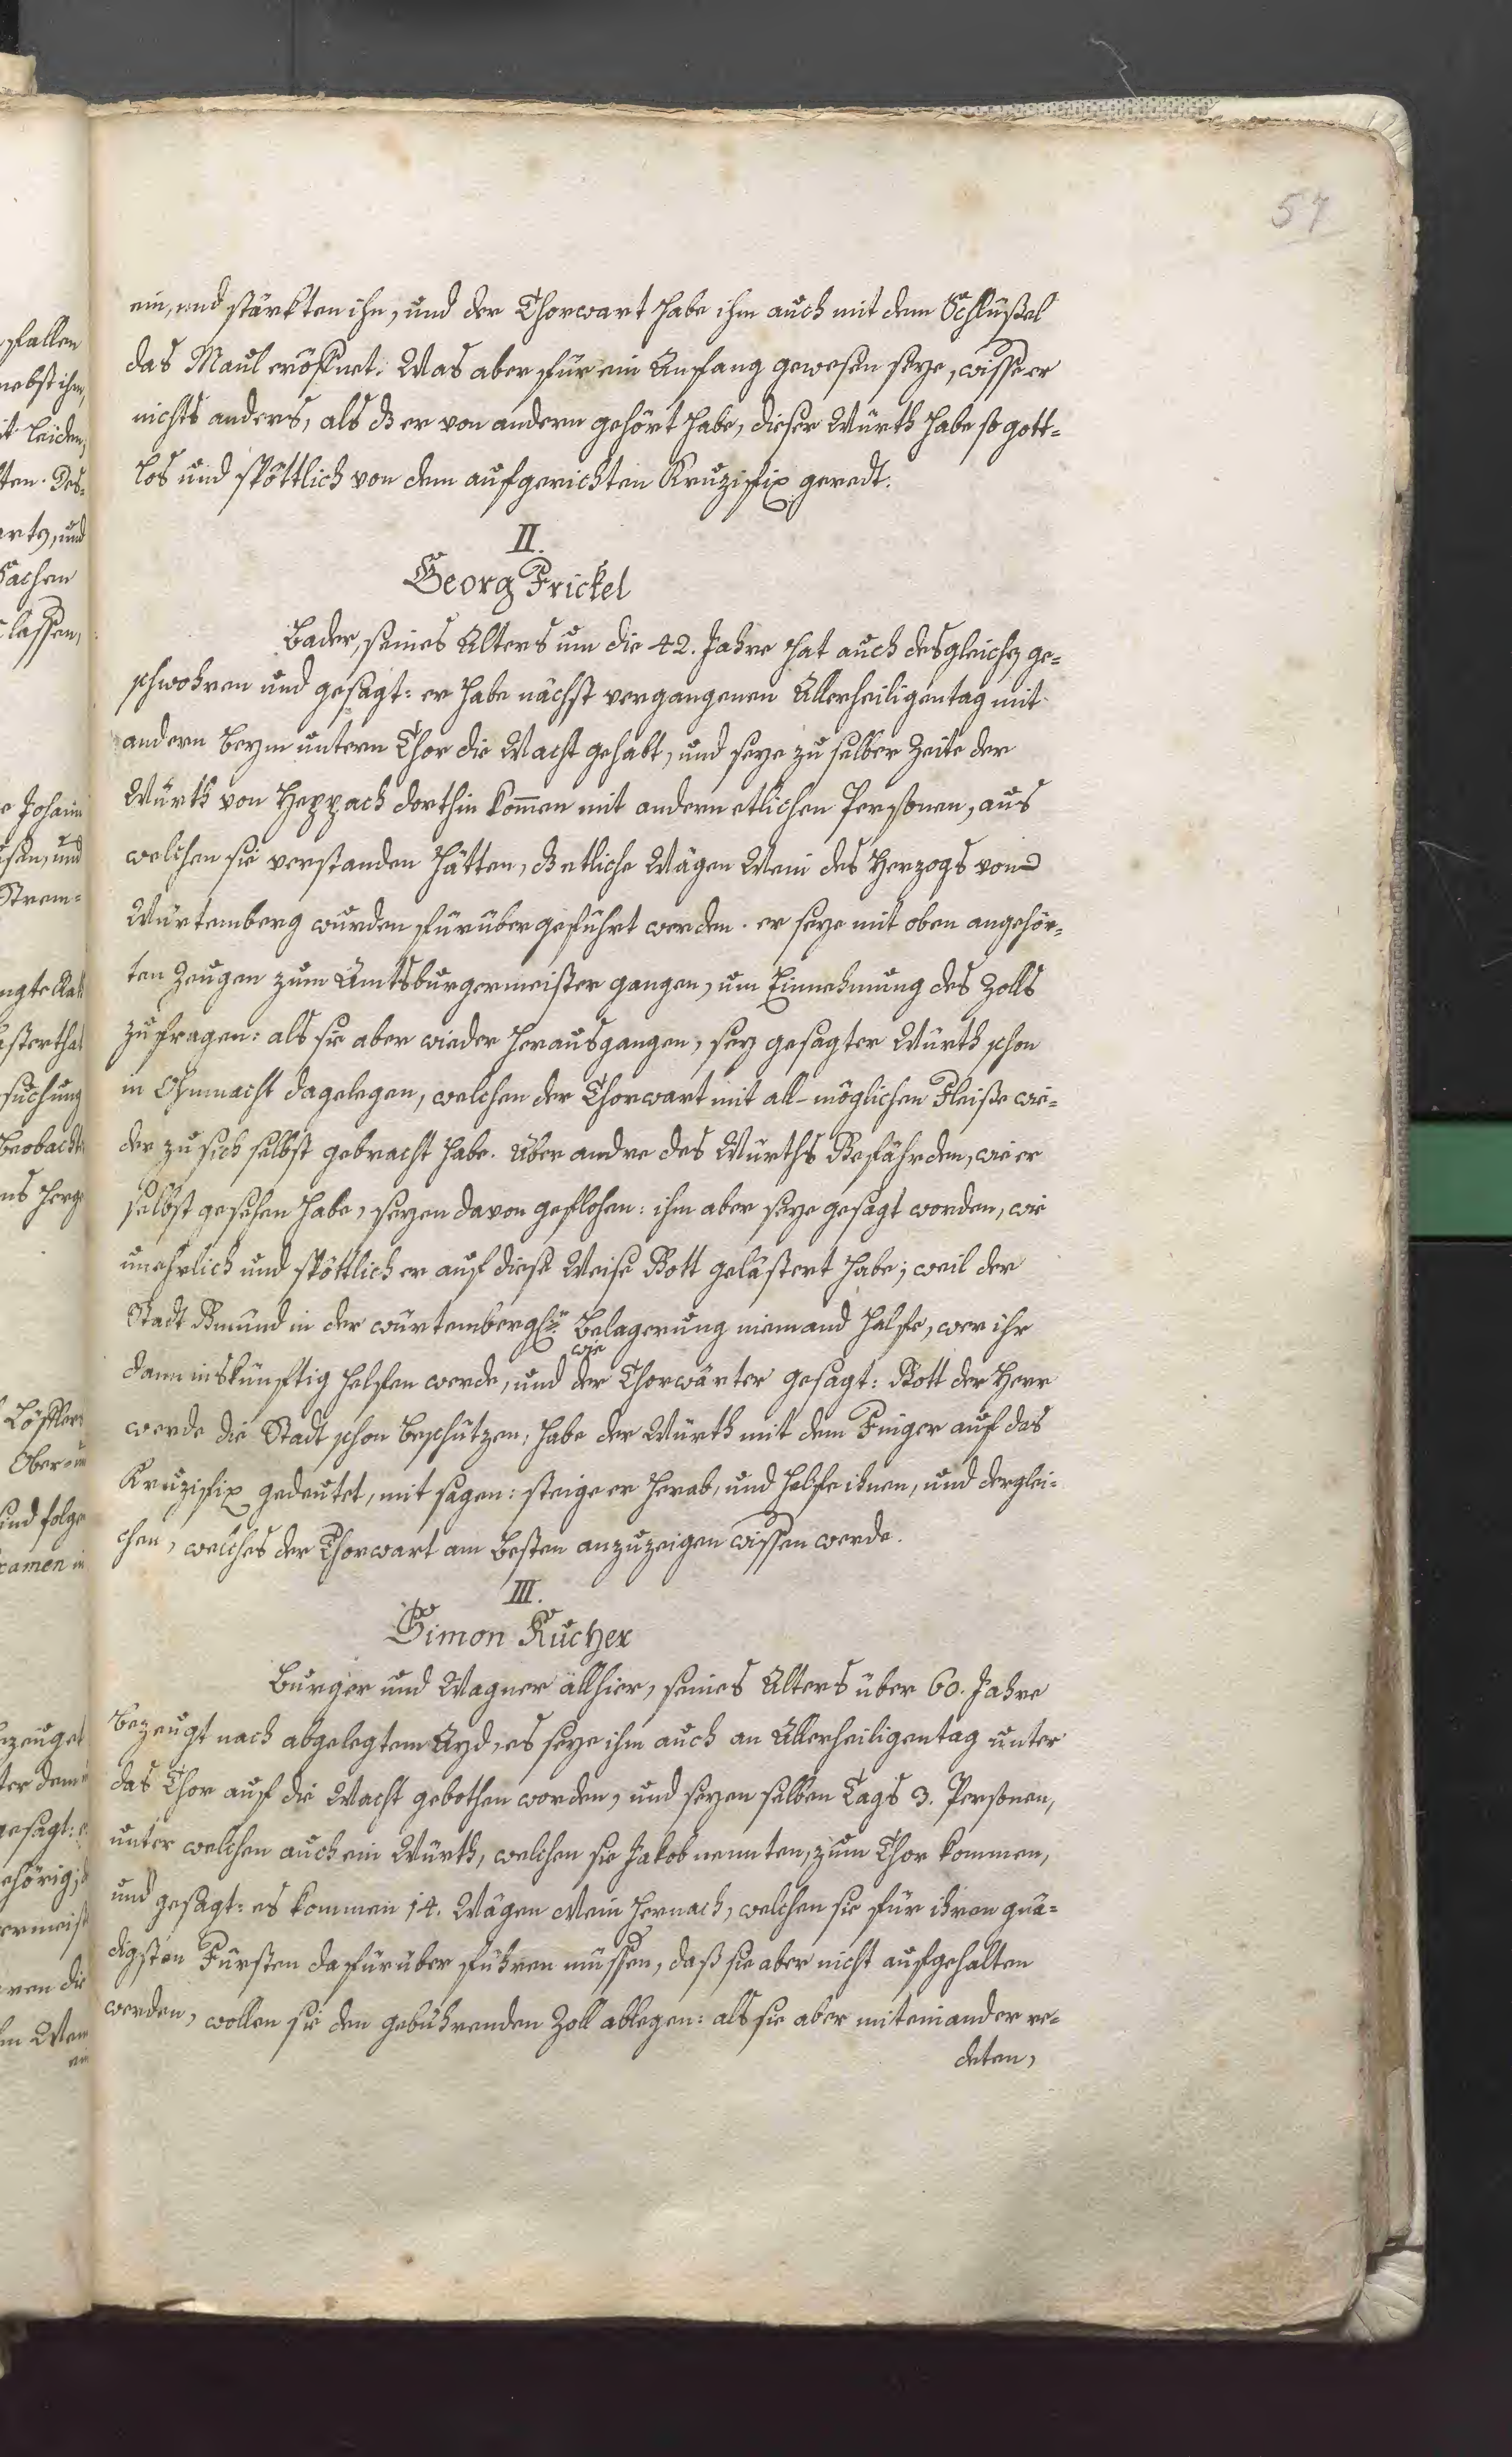 57
ein, und stärkten ihn, und der Thorwart habe ihm auch mit dem Schlüßel
das Maul eröffnet. Was aber für ein Anfang gewesen seye, wisse er
nichts anders, als dz er von andern gehört habe, dieser Würth habe so gott-
los und spöttlich von dem aufgerichten Kruzifix geredt.
II.
Georg Frickel
Bader, seines Alters um die 42. Jahre hat auch desgleichen ge-
schwohren und gesagt: er habe nächst vergangenen Allerheiligentag mit
andern beym untern Thor die Wacht gehabt, und seye zu selber Zeite der
Würth von Heppach dorthin kom̄en mit andern etlichen Personen, aus
welchen sie verstanden hätten, dz etliche Wägen Wein des Herzogs von
Würtemberg wurden fürüber geführt werden. er seye mit oben angehör-
ten Zeugen zum Amtsburgermeister gangen, um Einnehmung des Zolls
zu fragen: als sie aber wieder herausgangen, sey gesagter Würth schon
in Ohnmacht dagelegen, welchen der Thorwart mit all-möglichen Fleiße wie-
der zu sich selbst gebracht habe. Über andre des Würths Gefährden, wie er
selbst gesehen habe, seyen davon geflohen: ihm aber seye gesagt worden, wie
unehrlich und spöttlich er auf diese Weise Gott gelästert habe; weil der
Stadt Gmünd in der würtembergl. Belagerung niemand helfe, wer ihr
wie
dann inskünftig helfen werde, und der Thorwärter gesagt: Gott der Herr
werde die Stadt schon beschützen, habe der Würth mit dem Finger auf das
Kruzifix gedeutet, mit sagen: steige er herab, und helfe ihnen, und derglei-
chen, welches der Thorwart am besten anzuzeigen wissen werde.
III.
Simon Kucher
Burger und Wagner allhier, seines Alters über 60. Jahre
bezeugt nach abgelegtem Ayd, es seye ihm auch an Allerheiligentag unter
das Thor auf die Wacht gebothen worden, und seyen selben Tags 3. Personen,
unter welchen auch ein Würth, welchen sie Jakob nennten, zum Thor kommen,
und gesagt: es kommen 14. Wägen Wein hernach, welchen sie für ihren gnä-
digsten Fürsten da fürüber führen müssen, daß sie aber nicht aufgehalten
werden, wollen sie den gebührenden Zoll ablegen: als sie aber miteinander re-
deten,